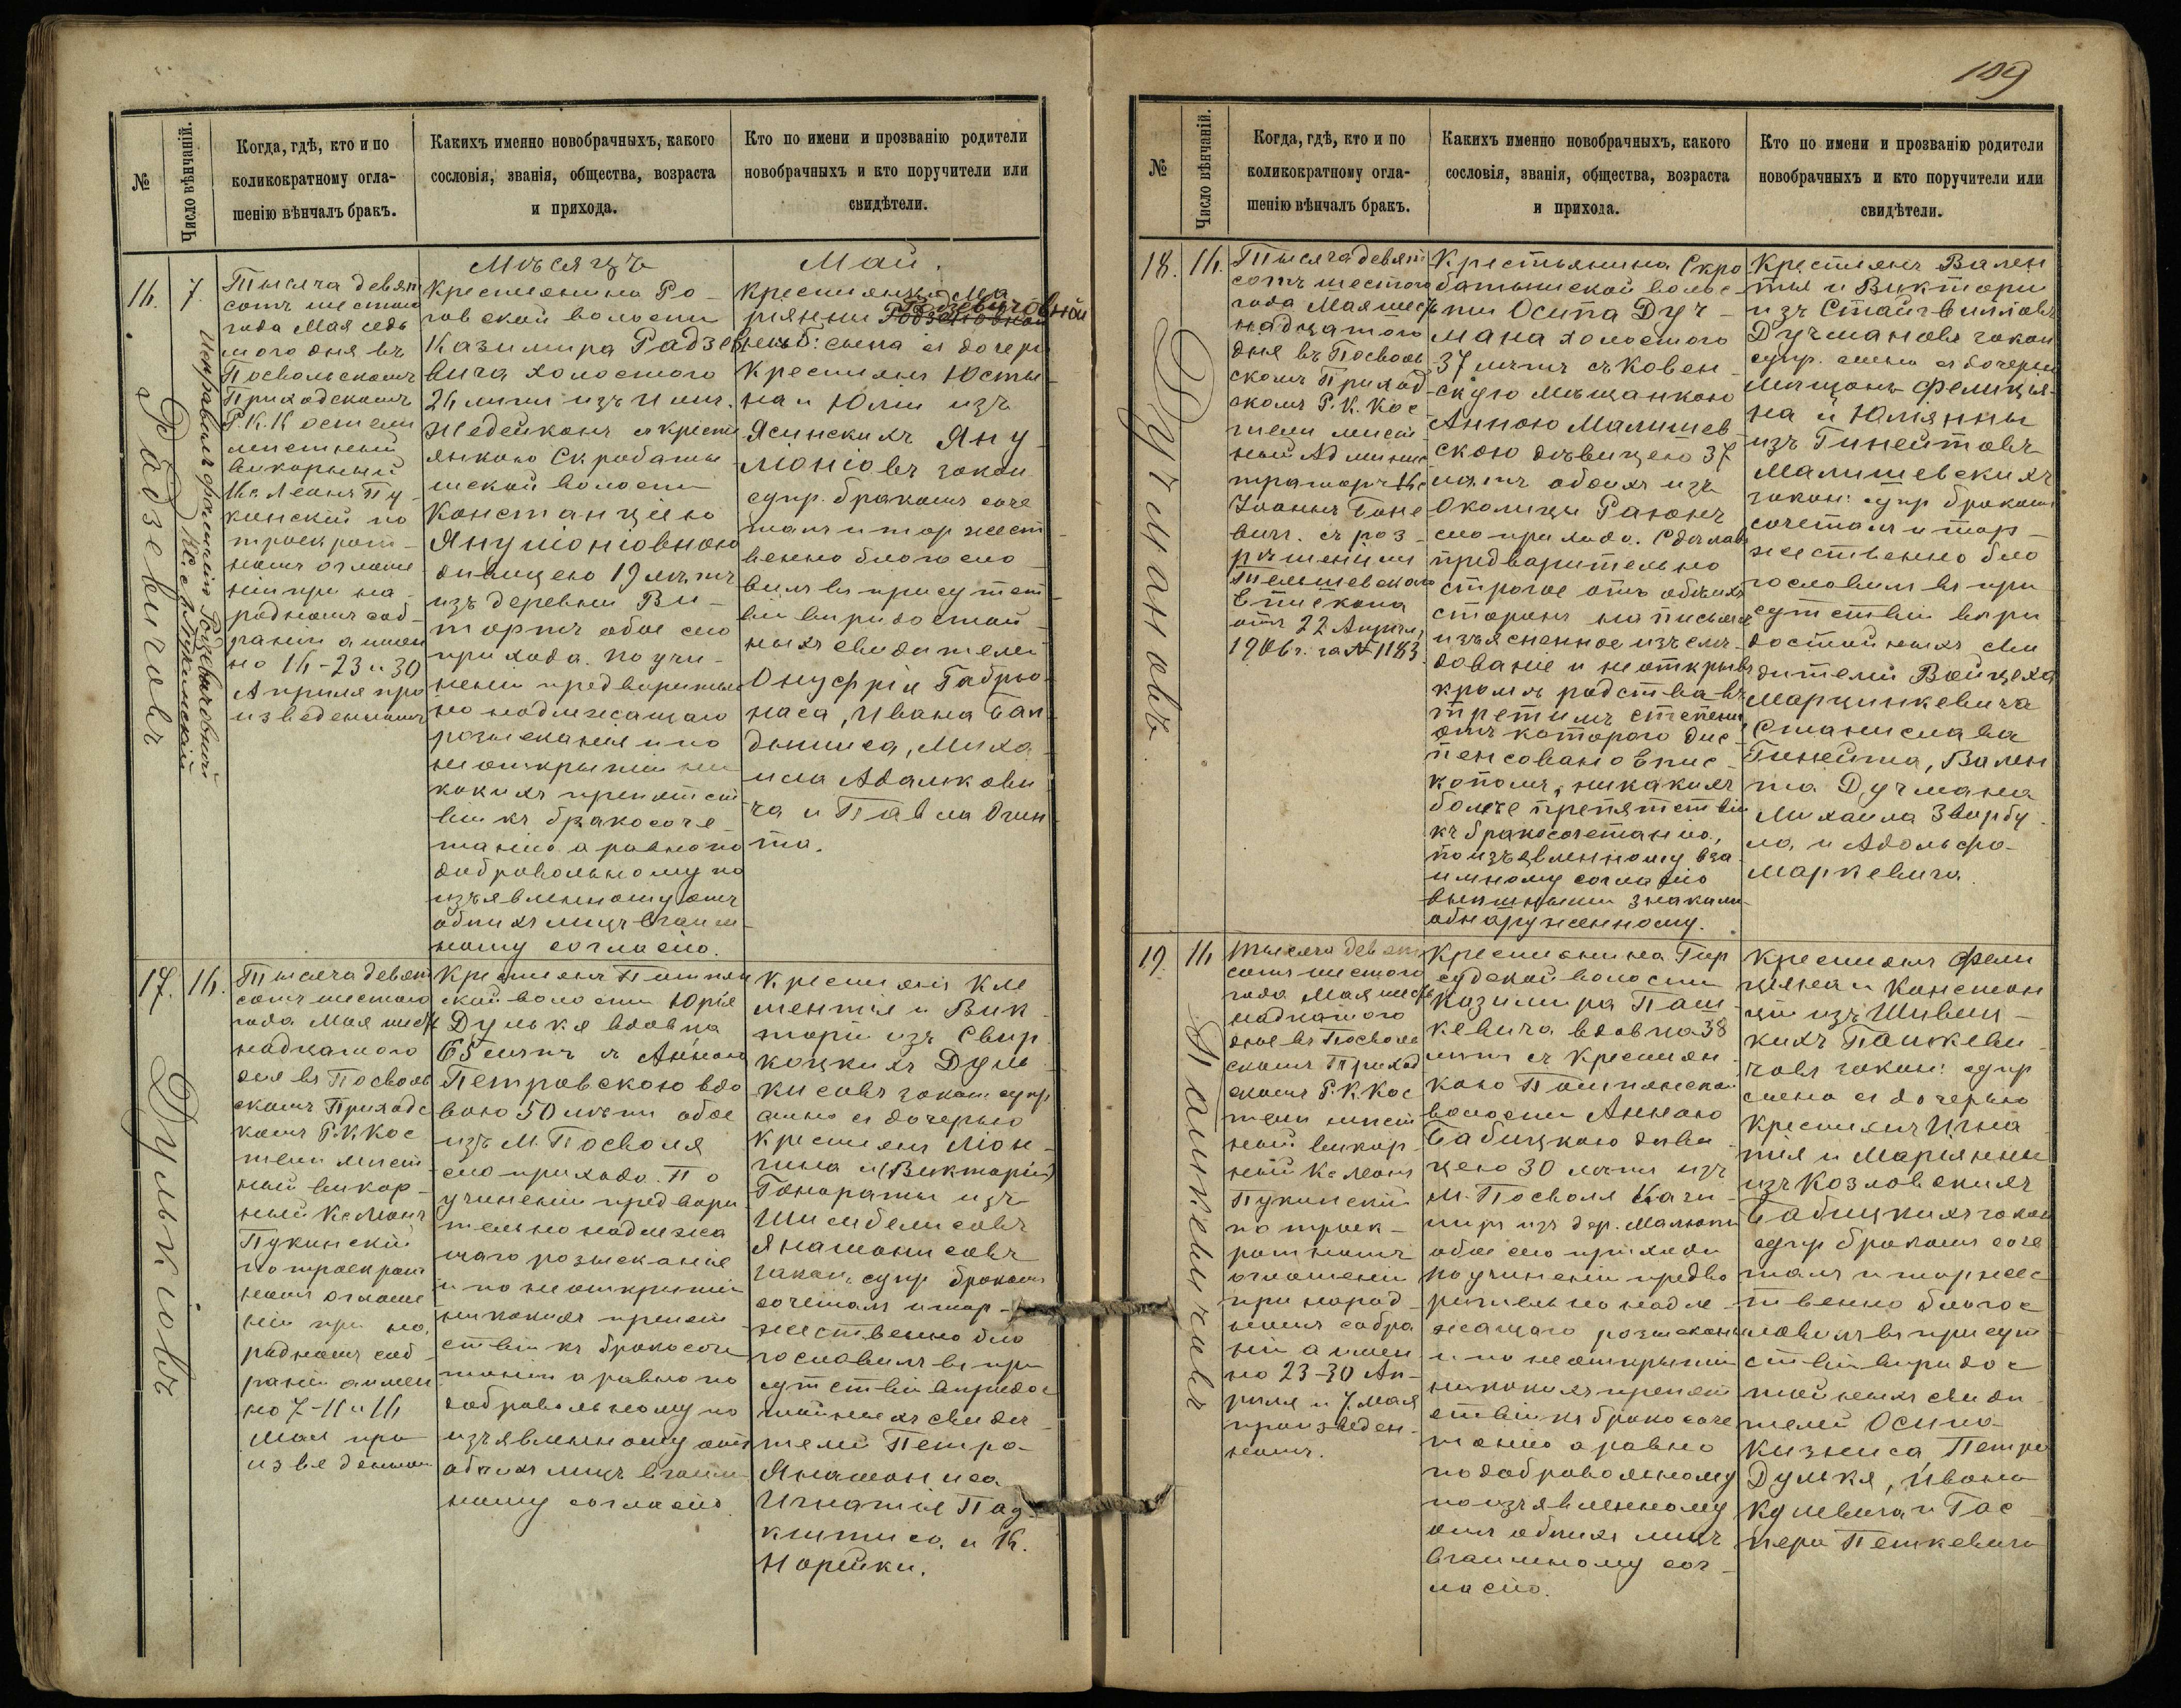 109
№
Число вѣнчаній.
Когда, гдѣ, кто и по
коликократному огла-
шенію вѣнчалъ бракъ.
Каихъ именно новобрачныхъ, какого
сословія, званія, общества, возраста
и прихода.
Кто по имени и прозванію родители
новобрачныхъ и кто поручители или
свидѣтели.
Мѣсяцъ
Май.
16.
7.
Радзевичовъ
Исправилъ фамилію Родзевичовной
Кс. Л. Пукинскій
Тысяча девят
сотъ шестого
года Мая седь
мого дня въ
Посвольскомъ
Приходскомъ
Р. К. Костели
мѣстный
викарный
Кс. Леонъ Пу
кинскій по
троекрат-
номъ оглаше
ніи при на-
родномъ соб-
раніи а имен
но 16-23 и 30
Апрѣля про
изведенномъ
Крестьянина Ро-
говской волости
Казимира Радзе
вича холостого
26 лѣтъ изъ имѣ.
Жедейконъ съ крестъ
янкою Скробаты
шской волости
Констанціею
Янушоніовною
дѣвицею 19 лѣтъ
изъ деревни Ви-
торт обое сего
прихода. По учи-
неніи предваритель
но надлежащаго
розысканія и по
неоткрытіи ни
какихъ препятст
вій къ бракосоче-
танію а равно по
добровольному по
изъявленному отъ
обѣихъ лицъ взаим-
ному согласію.
Крестьянки Ма
ріянны Радзевичовной
незб: сына съ дочерью
Крестьянъ Юсты-
на и Юліи изъ
Ясинскихъ Яну
шоніовъ закон
супр. бракомъ соче
талъ и торжест
венно благосло-
вилъ въ присутст
віи вѣридостой-
ныхъ свидѣтелей
Онуфрія Габрю-
наса, Ивана Бал
дышиса, Миха
ила Адамкови
ча и Павла Огин
та.
17.
16.
Дулькіовъ
Тысяча девят
сотъ шестого
года Мая шест
надцатого
дня въ Посволь
скомъ Приходс
комъ Р. К. Кос
тели мѣст
ный викар-
ный Кс Леонъ
Пукинскій
по троекрат
номъ оглаше
ніи при на.
родномъ соб
раніи а имен
но 7-11 и 14
Мая про
изведенном
Крестьянъ Помпян
ской волости Юрія
Дулькя вдовца
65 лѣтъ съ Анною
Петровскою вдо
вою 50 лѣтъ обое
изъ М. Посволя
сего прихода. По
учиненіи предвари
тельно надлежа
щаго розысканія
и по неоткрытіи
никакихъ препят
ствій къ бракосоче
танію а равно по
добровольному по
изъявленному отъ
обѣихъ лицъ взаим
ному согласію
Крестьянъ Кле
ментія и Вик-
торіи изъ Свир
коцкихъ Дуль
кисовъ закон супр
сына съ дочерью
Крестьянъ Лон-
гина и (Викторіи)
Гонораты изъ
Шимбелисовъ
Янашонисовъ
закон, супр бракомъ
сочеталъ и тор-
жественно бла
гословилъ въ при
сутствіи вѣридос
тойныхъ свидѣ
телей Петра
Янашониса
Игнатія Пад
клитиса, и К.
Норейки.
№
Число вѣнчаній.
Когда, гдѣ, кто и по
коликократному огла-
шенію вѣнчалъ бракъ.
Какихъ именно новобрачныхъ, какого
сословія, званія, общества, возраста
и прихода.
Кто по имени и прозванію родители
новобрачныхъ и кто поручители или
свидѣтели.
18.
16.
Дучмановъ
Тысяча девят
сотъ шестого
года Мая шест
надцатого
дня въ Посволь
скомъ Приход
скомъ Р. К. Кос
тели мѣст
ный Админис
траторъ Кс
Іоаннъ Гоне
вичъ. съ роз-
рѣшенія
Тельшевскаго
Епископа
отъ 22 Апрѣля
1906 г. за № 1183
Крестьянина Скро
батышской волос-
ти Осипа Дуч-
мана холостого
37 лѣтъ съ Ковен-
скою мѣщанкою
Анною Малишев
скою дѣвицею 37
лѣтъ обоихъ изъ
Околицы Раюнъ
сего прихода. Сдѣлавъ
предварительно
строгое отъ обѣихъ
сторонъ на письмѣ
изъясненное изслѣ-
дованіе и не открывъ
кромѣ родства въ
третьимъ степени
отъ которого дис-
пенсовано Епис-
копомъ, никакихъ
болѣе препятствій
къ бракосочетанію,
по изъявленному вза-
имному согласію
внѣшными знаками
обнаруженному.
Крестьянъ Вален
тія и Викторіи
изъ Стайгвилловъ
Дучмановъ закон
супр. сына съ дочерью
Мѣщанъ Фелиція-
на и Юліянны
изъ Гинейтовъ
Малишевскихъ
закон: супр бракомъ
сочеталъ и тор-
жественно бла
гословилъ въ при
сутствіи вѣри
достойныхъ сви
дѣтелей Войцеха
Марцинкевича
Станислава
Гинейта, Вален
та Дучмана
Михаила Звирбу
ла, и Адольфа
Маркевича.
19.
16
Пашкевичовъ
Тысяча девят
сотъ шестого
года Мая шест
надцатого
дня въ Посволь
скомъ Приход
скомъ Р. К. Кос
тели мѣст
ный викар-
ный Кс Леонъ
Пукинскій
по троек-
ратномъ
оглашеніи
при народ-
номъ собра
ніи а имен
но 23-30 Ап-
рѣля и 7 Мая
произведен-
номъ.
Крестьянина Гир
судской волости
Казимира Паш
кевича вдовца 38
лѣтъ съ Крестьян
кою Помпянской
волости Анною
Бабицкою дѣви
цею 30 лѣтъ изъ
М. Посволя Кази-
миръ изъ дер. Малюны
обое сего прихода
по учиненіи предва
рительно надле-
жащаго розыскані
и по неоткрытіи
никакихъ препят
ствій къ бракосоче
танію а равно
по добровольному
по изъявленному
отъ обѣихъ лицъ
взаимному сог-
ласію.
Крестьянъ Фели
ціяна и Констан
ціи изъ Шивиц-
кихъ Пашкеви
човъ закон: супр
сына съ дочерью
Крестьянъ Игна
тія и Маріянны
изъ Козловскихъ
Бабицкихъ закон
супр бракомъ соче
талъ и торжес
твенно благос
ловилъ въ присут
ствіи вѣридос
тойныхъ свидѣ
телей Осипа
Кизниса Петра
Дулькя, Ивана
Кулевича и Гас
пера Петкевича